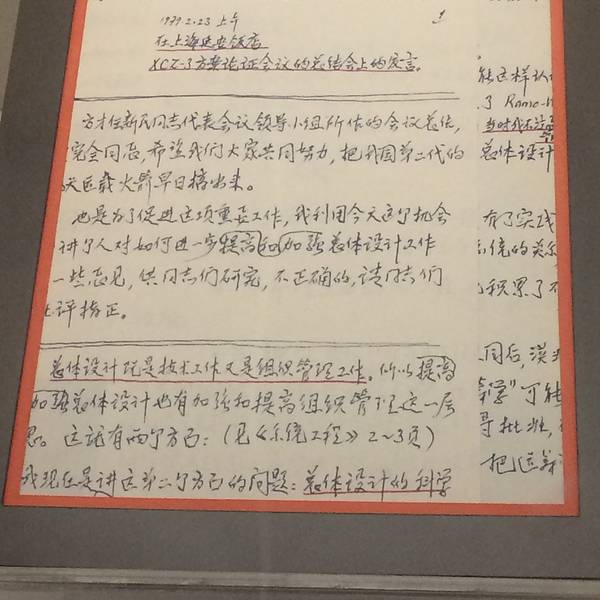 1979.2.23 上午
1
在上海延安饭店
XCZ-3方案论证会议的总结会上的发言。
方才任新民同志代表会议领导小组所作的会议总结,
完全同意,希望我们大家共同努力,把我国第二代的
运载火箭早日搞出来。
也是为了促进这项重要工作,我利用今天这个机会
讲个人对如何进一步提高和加强总体设计工作
一些意见,供同志们研究,不正确的,请同志们
批评指正。
总体设计既是技术工作又是组织管理工作。所以提高
加强总体设计也有加强和提高组织管理这一层
思。这就有两个方面:(见《系统工程》2~3页)
我现在是讲这第二个方面的问题:总体设计的科学
能这样认
了 Ramo-
当时我不
总体设计
有了实践
系统的关系
积累了不
同后,
学”可能
寻批准,